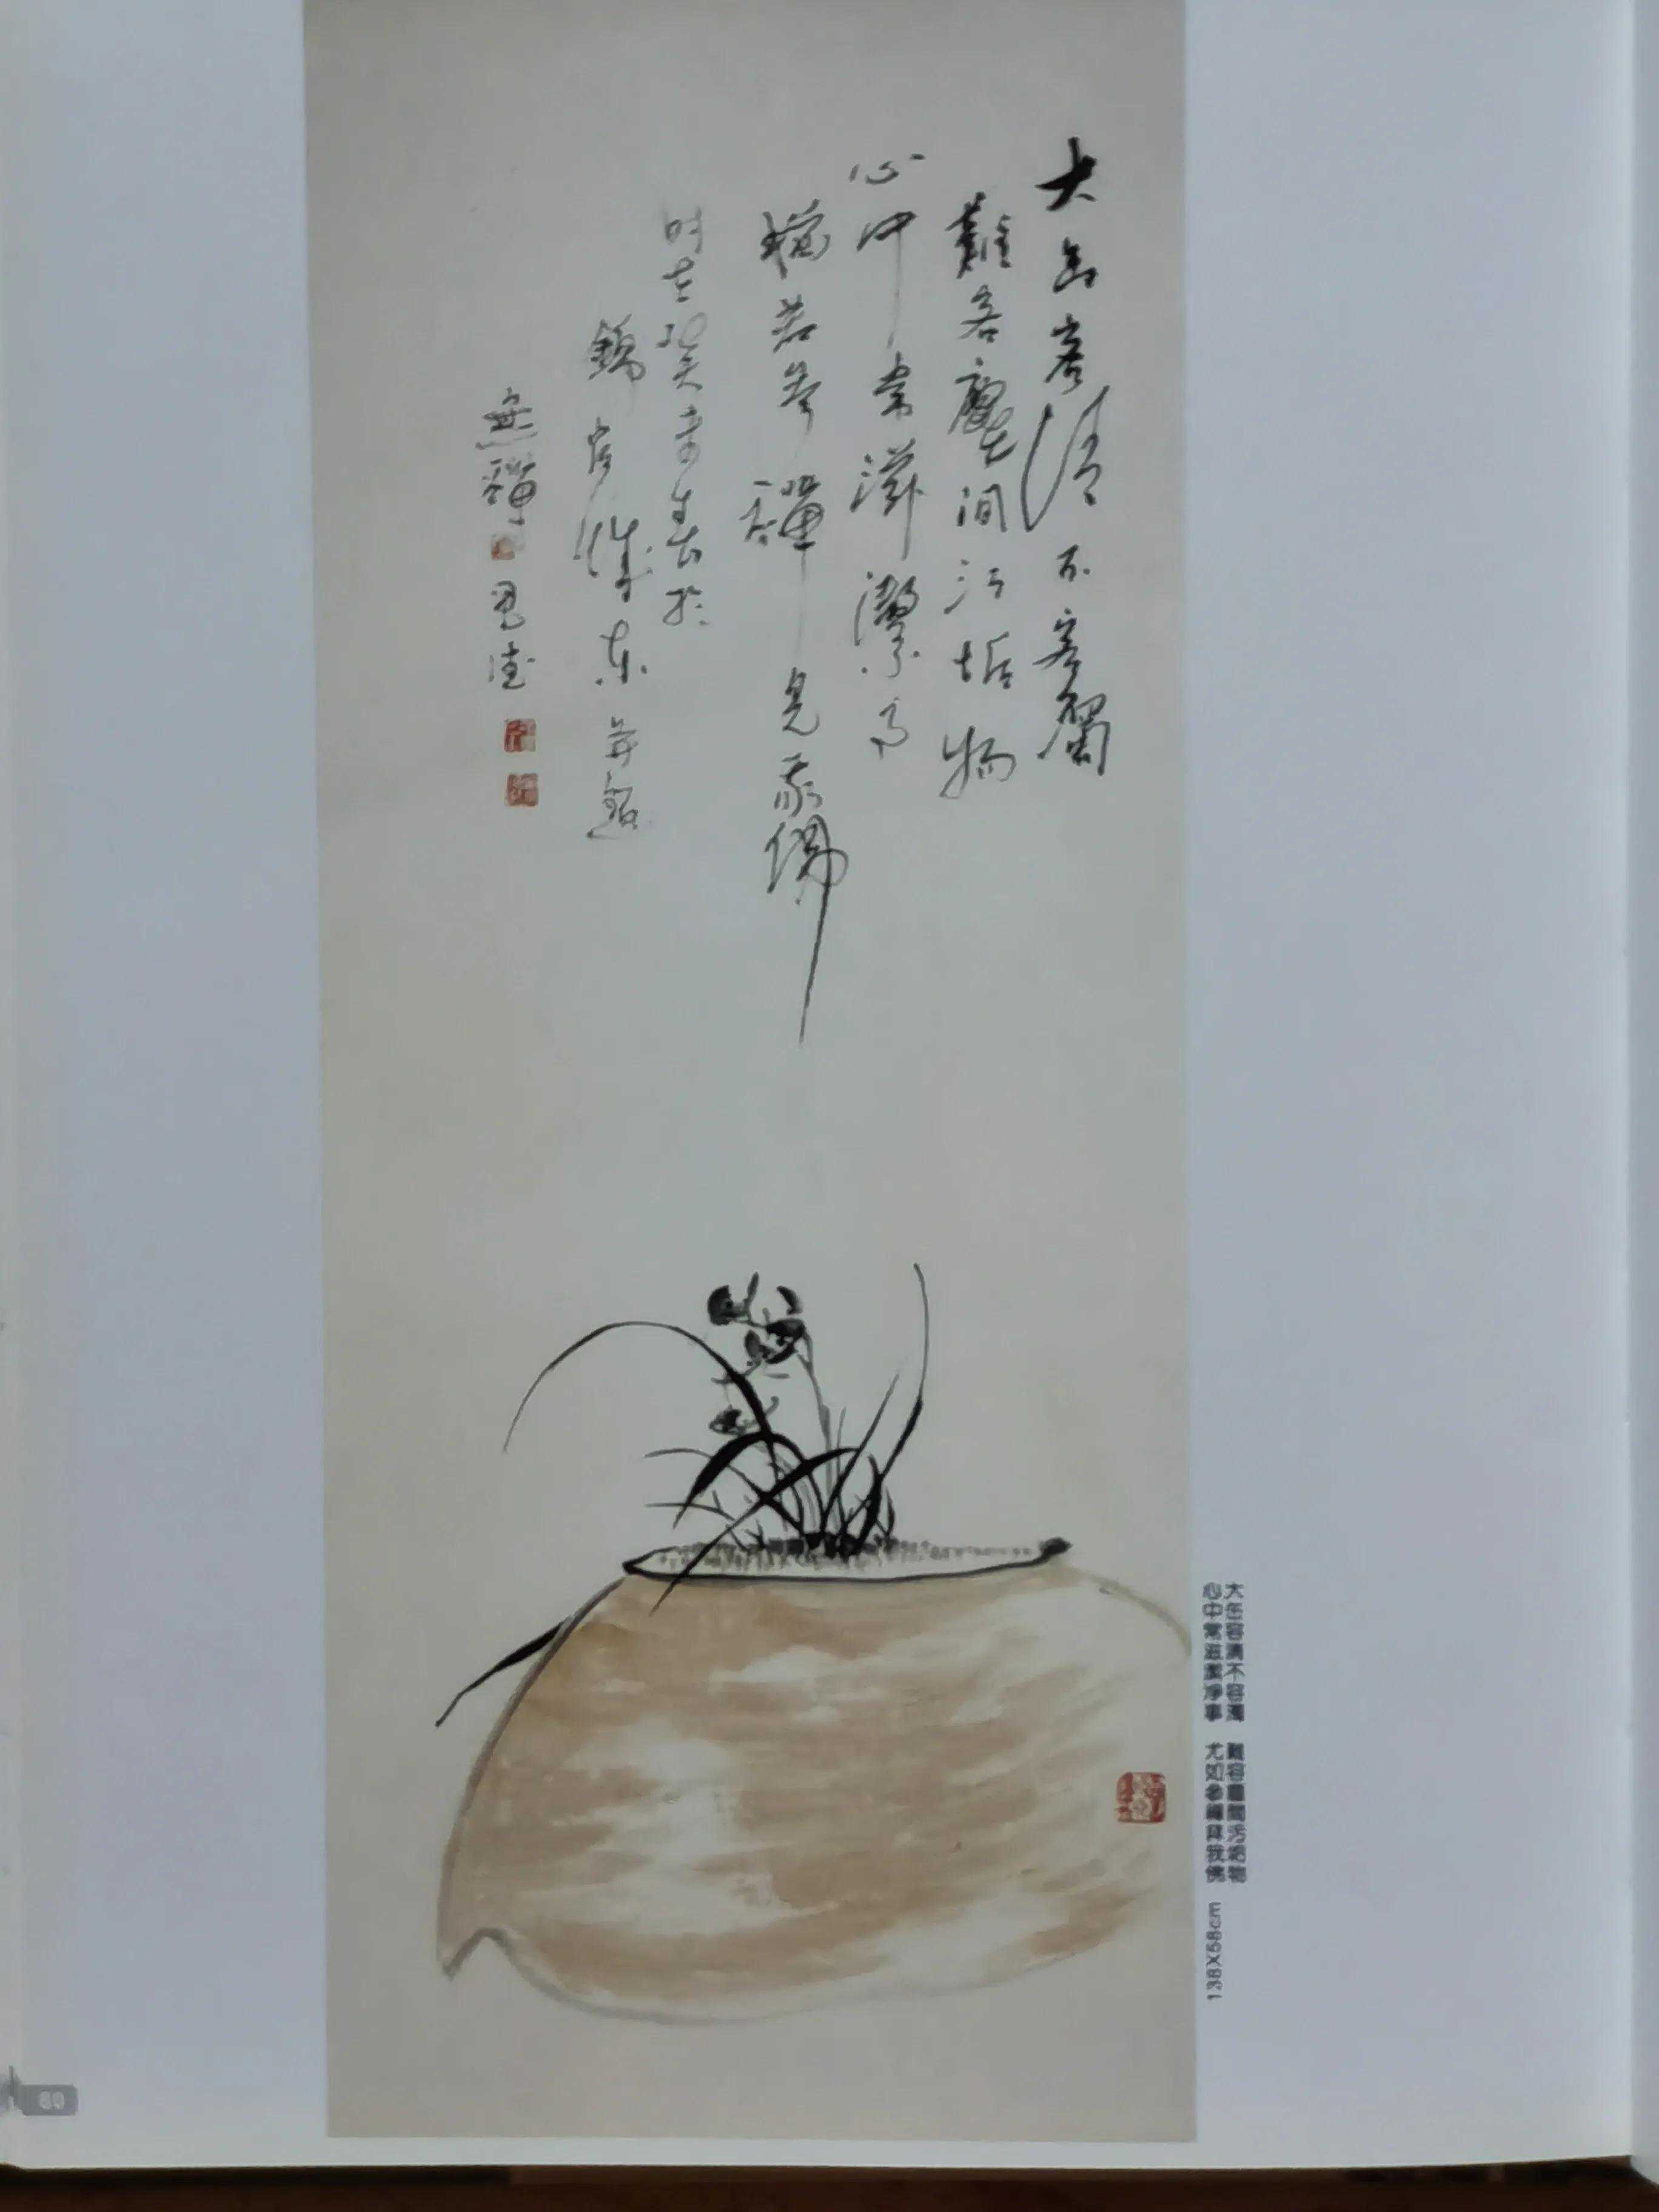 大缶容清不容濁
難容塵間污垢物
心中常滋潔事
猶若參禪見我佛
时在癸未春於
錦官城东並題
無禪
大缶容清不容濁 難容塵間污垢物
心中常滋潔凈事 尤如參禪拜我佛 138X68cm